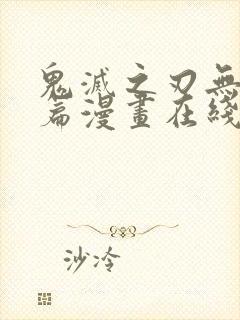 鬼滅之刃無
篇漫畫在綫
沙冷